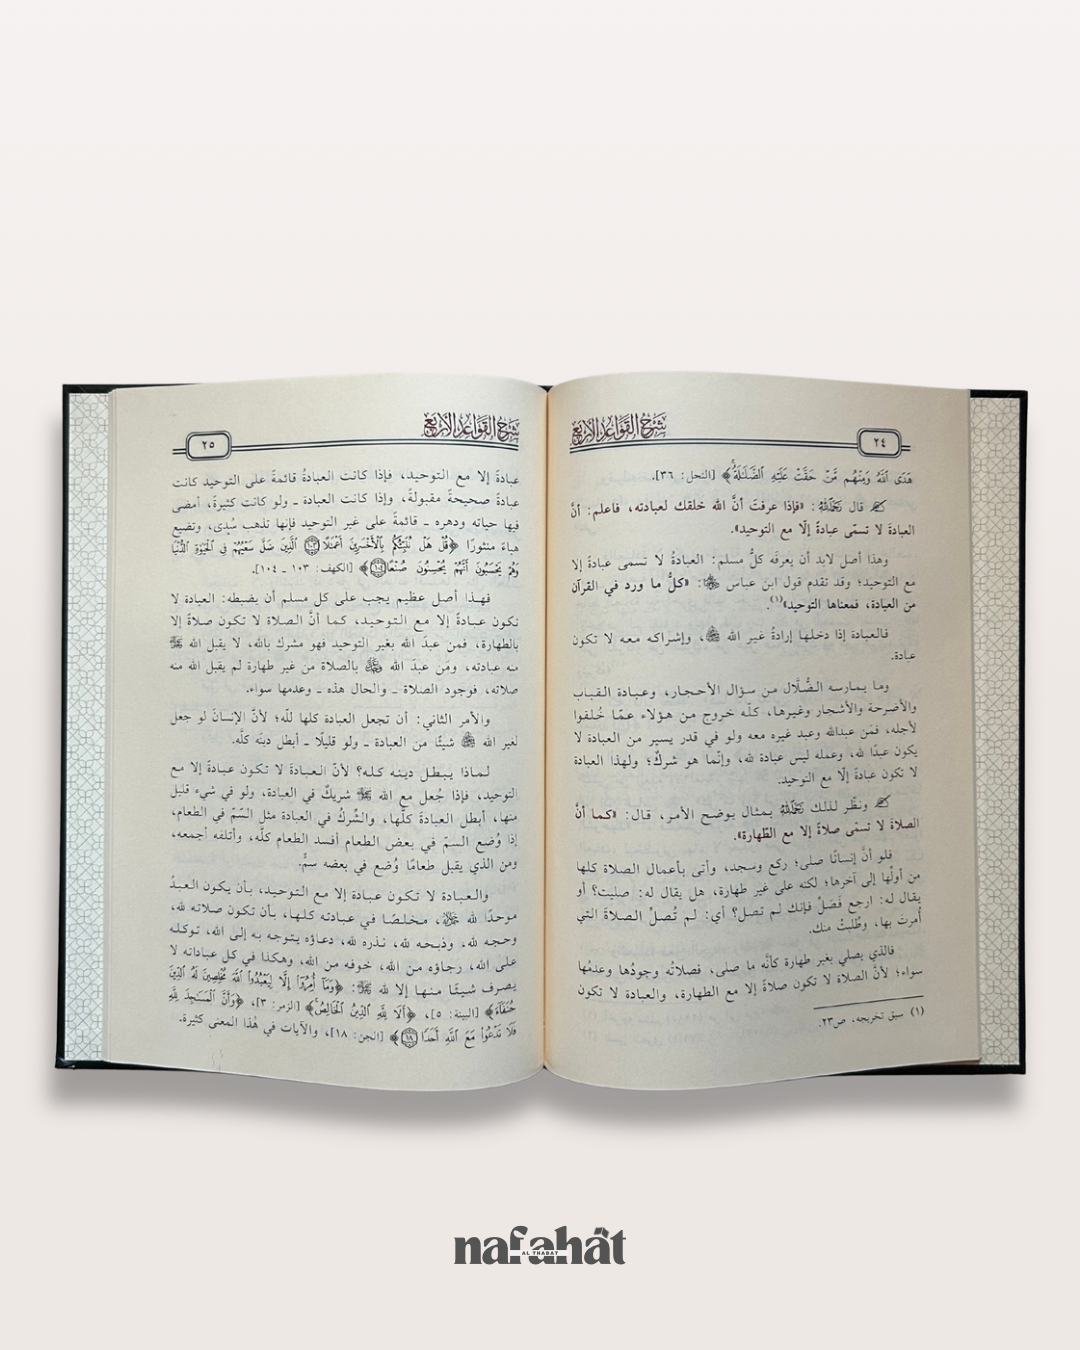 شرح القواعد الأربع
٢٤
هَدَى ٱللَّهُ وَمِنْهُم مَّنْ حَقَّتْ عَلَيْهِ ٱلضَّلَٰلَةُ﴾ [النحل: ٣٦].
قال رَحِمَهُ ٱللَّهُ: «فإذا عرفتَ أنَّ الله خلقك لعبادته، فاعلم: أنَّ
العبادةَ لا تسمّى عبادةً إلّا مع التوحيد».
وهذا أصل لابد أن يعرفَه كلُّ مسلم: العبادةُ لا تسمى عبادةً إلا
مع التوحيد؛ وقد تقدم قول ابن عباس ﵄: «كلُّ ما ورد في القرآن
من العبادة، فمعناها التوحيد»(١).
فالعبادة إذا دخلها إرادةُ غير الله ﷻ، وإشراكه معه لا تكون
عبادة.
وما يمارسه الضُّلَّال من سؤال الأحجار، وعبادة القباب
والأضرحة والأشجار وغيرها، كلّه خروج من هؤلاء عمّا خُلقوا
لأجله، فمَن عبدالله وعبد غيره معه ولو في قدر يسير من العبادة لا
يكون عبدًا لله، وعمله ليس عبادة لله، وإنّما هو شركٌ؛ ولهذا العبادة
لا تكون عبادةً إلّا مع التوحيد.
ونظّر لذلك رَحِمَهُ ٱللَّهُ بمثال يوضح الأمر، قال: «كما أنَّ
الصلاةَ لا تسمّى صلاةً إلا مع الطّهارة».
فلو أنَّ إنسانًا صلى؛ ركع وسجد، وأتى بأعمال الصلاة كلها
من أولّها إلى آخرها؛ لكنه على غير طهارة، هل يقال له: صليت؟ أو
يقال له: ارجع فَصَلِّ فإنك لم تصل؟ أي: لم تُصلِّ الصلاةَ التي
أُمرتَ بها، وطُلبتْ منك.
فالذي يصلي بغير طهارة كأنَّه ما صلى، فصلاتُه وجودُها وعدمُها
سواء؛ لأنَّ الصلاة لا تكون صلاةً إلا مع الطهارة، والعبادة لا تكون
(١) سبق تخريجه، ص٢٣.
شرح القواعد الأربع
٢٥
عبادةً إلا مع التوحيد، فإذا كانت العبادةُ قائمةً على التوحيد كانت
عبادةً صحيحةً مقبولةً، وإذا كانت العبادة ـ ولو كانت كثيرةً، أمضى
فيها حياته ودهره ـ قائمةً على غير التوحيد فإنها تذهب سُدى، وتضيع
هباءً منثورًا ﴿قُلْ هَلْ نُنَبِّئُكُم بِٱلْأَخْسَرِينَ أَعْمَٰلًا ١٠٣ ٱلَّذِينَ ضَلَّ سَعْيُهُمْ فِى ٱلْحَيَوٰةِ ٱلدُّنْيَا
وَهُمْ يَحْسَبُونَ أَنَّهُمْ يُحْسِنُونَ صُنْعًا ١٠٤﴾ [الكهف: ١٠٣ ـ ١٠٤].
فهذا أصل عظيم يجب على كل مسلم أن يضبطه: العبادة لا
تكون عبادةً إلا مع التوحيد، كما أنَّ الصلاة لا تكون صلاةً إلا
بالطهارة، فمن عبدَ الله بغير التوحيد فهو مشرك بالله، لا يقبل الله ﷻ
منه عبادته، ومَن عبدَ الله ﷻ بالصلاة من غير طهارة لم يقبل الله منه
صلاته، فوجود الصلاة ـ والحال هذه ـ وعدمها سواء.
والأمر الثاني: أن تجعل العبادة كلها للّه؛ لأنَّ الإنسانَ لو جعل
لغير الله ﷻ شيئًا من العبادة ـ ولو قليلًا ـ أبطل دينَه كلَّه.
لماذا يبطل دينه كله؟ لأنّ العبادةَ لا تكون عبادةً إلا مع
التوحيد، فإذا جُعل مع الله ﷻ شريكٌ في العبادة، ولو في شيء قليل
منها، أبطل العبادةَ كلَّها، والشّركُ في العبادة مثل السّمّ في الطعام،
إذا وُضع السمّ في بعض الطعام أفسد الطعام كلّه، وأتلفه أجمعه،
ومن الذي يقبل طعامًا وُضع في بعضه سمٌّ.
والعبادة لا تكون عبادة إلا مع التوحيد، بأن يكون العبدُ
موحدًا لله ﷻ، مخلصًا في عبادته كلها، بأن تكون صلاته لله،
وحجه لله، وذبحه لله، نذره لله، دعاؤه يتوجه به إلى الله، توكله
على الله، رجاؤه من الله، خوفه من الله، وهكذا في كل عباداته لا
يصرف شيئًا منها إلا لله ﷻ: ﴿وَمَآ أُمِرُوٓا۟ إِلَّا لِيَعْبُدُوا۟ ٱللَّهَ مُخْلِصِينَ لَهُ ٱلدِّينَ
حُنَفَآءَ﴾ [البينة: ٥]، ﴿أَلَا لِلَّهِ ٱلدِّينُ ٱلْخَالِصُ﴾ [الزمر: ٣]، ﴿وَأَنَّ ٱلْمَسَٰجِدَ لِلَّهِ
فَلَا تَدْعُوا۟ مَعَ ٱللَّهِ أَحَدًا ١٨﴾ [الجن: ١٨]، والآيات في هٰذا المعنى كثيرة.
nafahât
AL THABAT